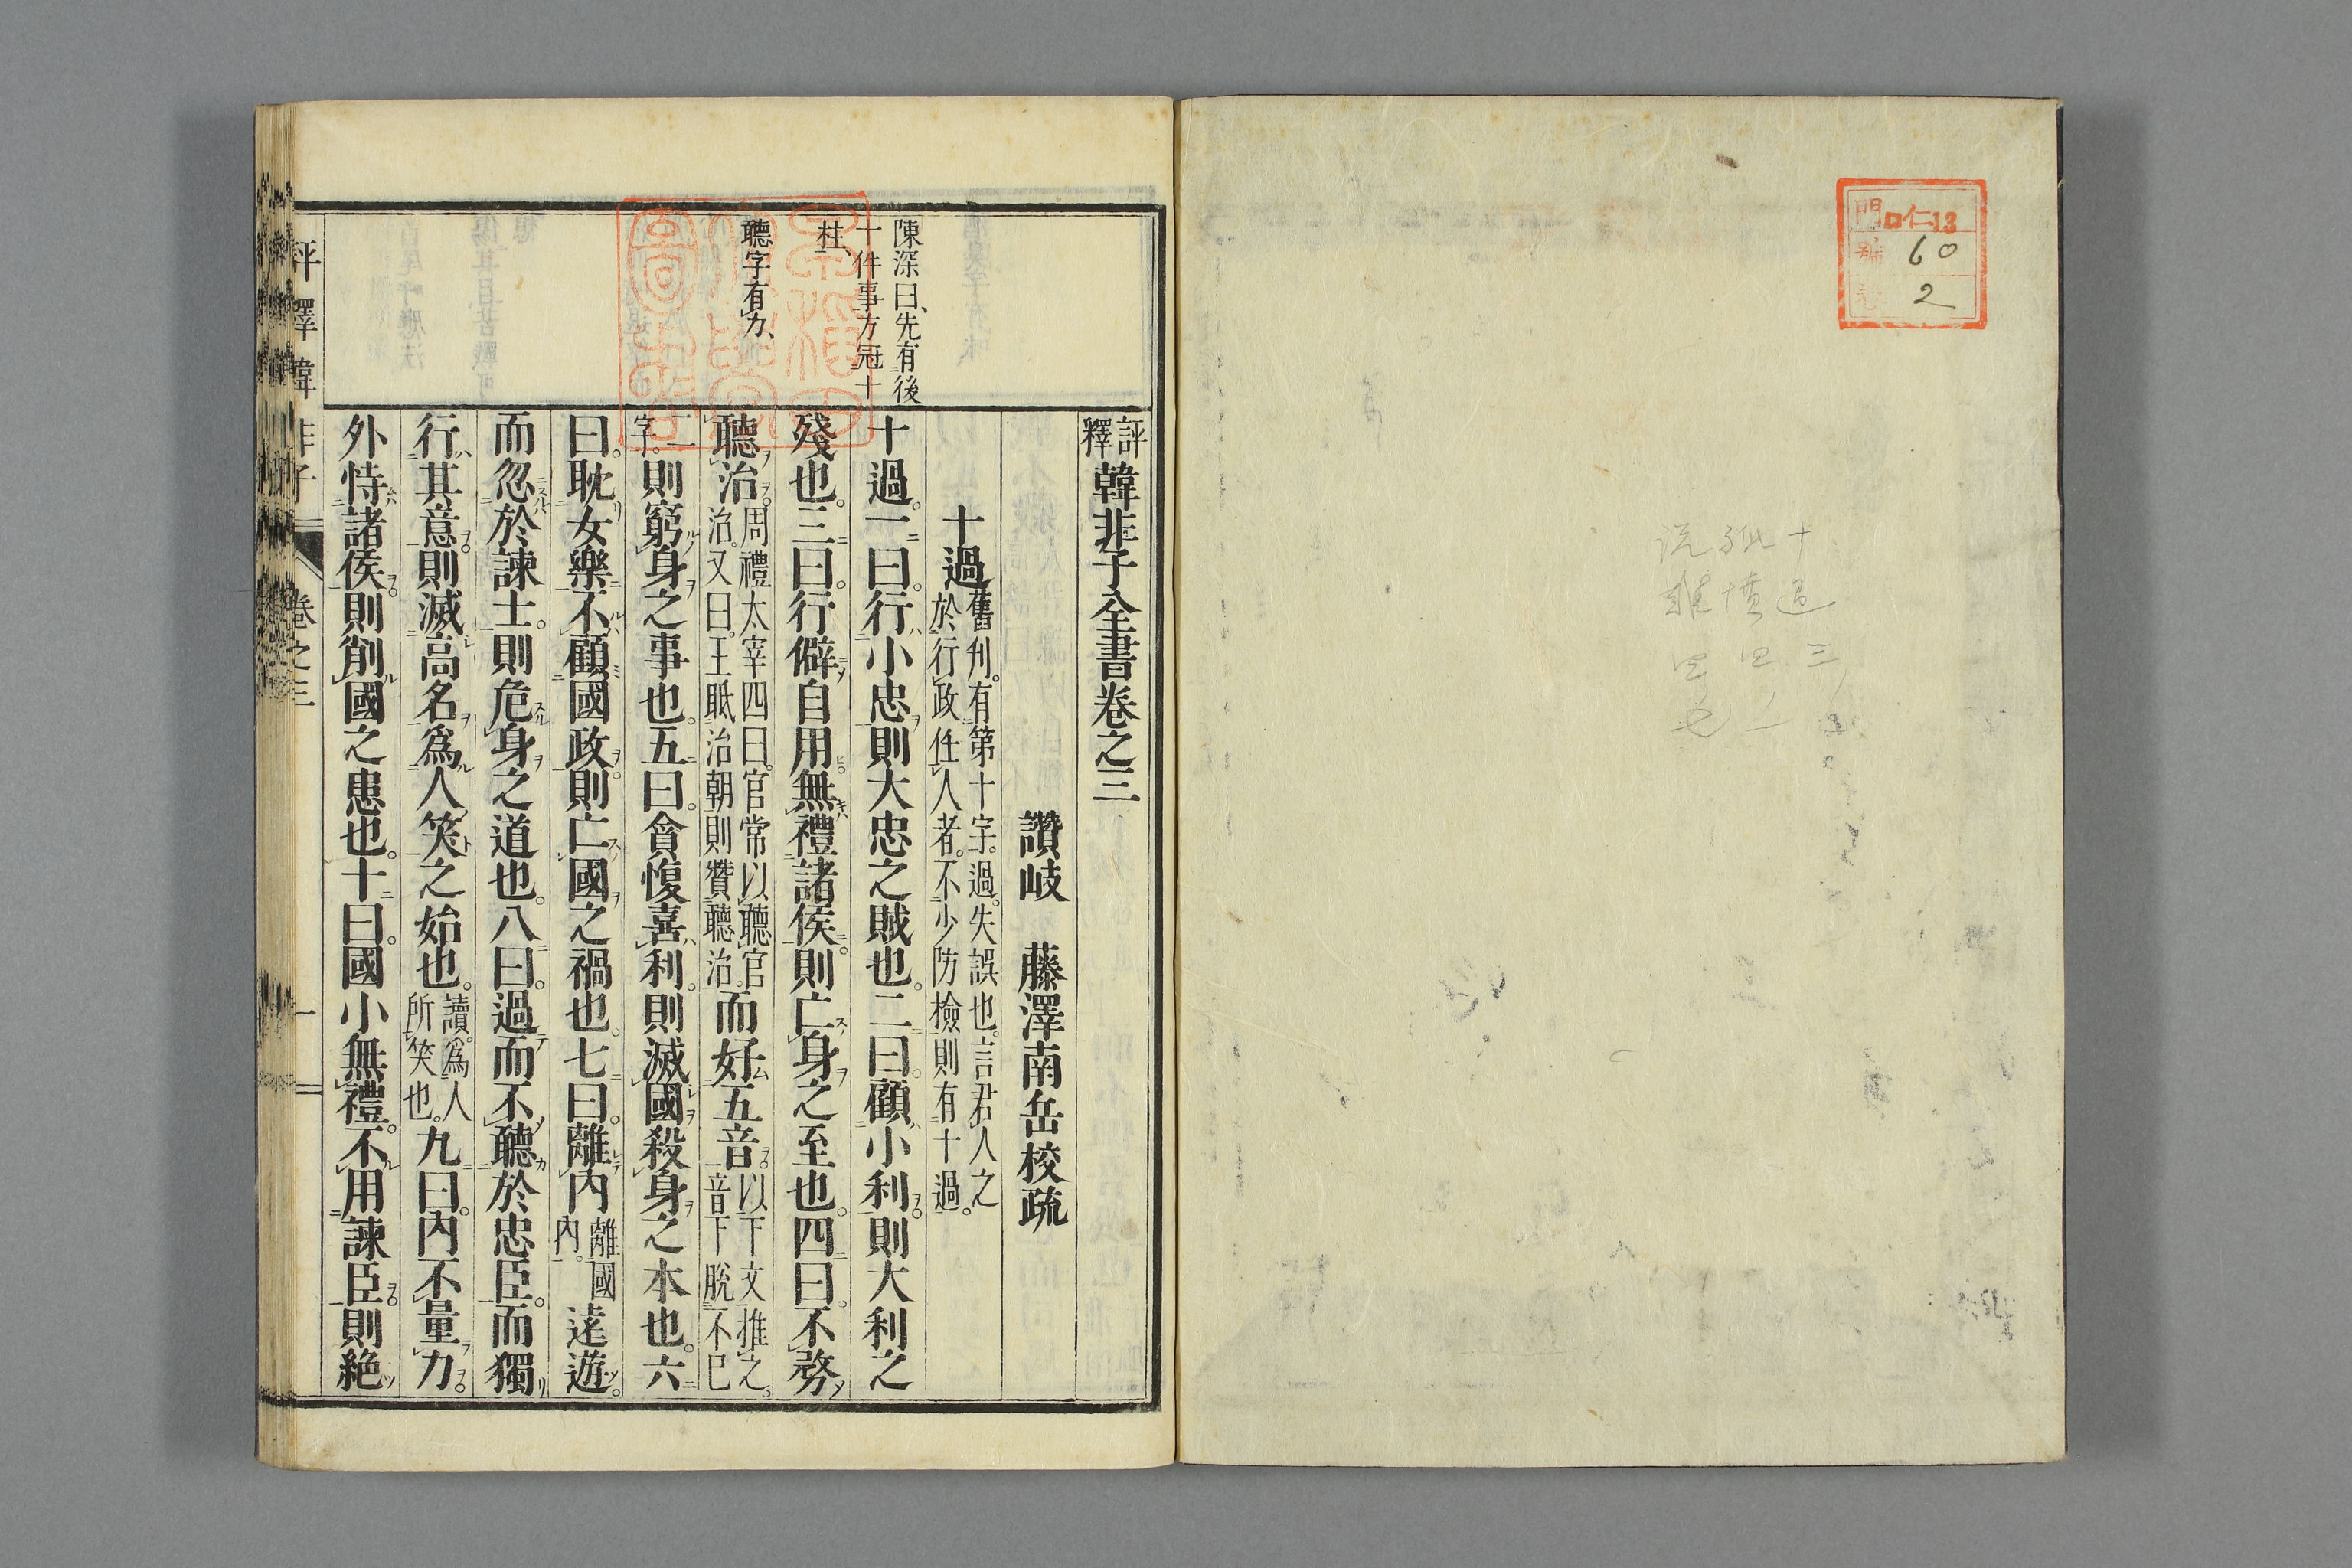 門 口仁13
號 60
卷 2
十過 三
孤憤 四
説難 四
評釋韓非子全書卷之三
讚岐 藤澤南岳校疏
十過舊刋。有第十字。過。失誤也。言君人之於行政任人者。不少防檢則有十過。
十過。一曰。行小忠則大忠之賊也。二曰。顧小利。則大利之
殘也。三曰。行僻自用。無禮諸侯。則亡身之至也。四曰。不務
聽治。周禮太宰四曰。官常以聽官治。又曰。王眡治朝則贊聽治。而好五音。以下文推之。音下脱不已
二字。則窮身之事也。五曰。貪愎喜利。則滅國殺身之本也。六
曰。耽女樂不顧國政。則亡國之禍也。七曰。離內離國內。遠遊。
而忽於諫士。則危身之道也。八曰。過而不聽於忠臣。而獨
行其意。則滅高名爲人笑之始也。讀。爲人所笑也。九曰。內不量力。
外恃諸侯。則削國之患也。十曰。國小無禮。不用諫臣。則絶
陳深曰、先有後
十件事方冠十
柱、
聽字有力、
評釋韓非子 卷之三 一